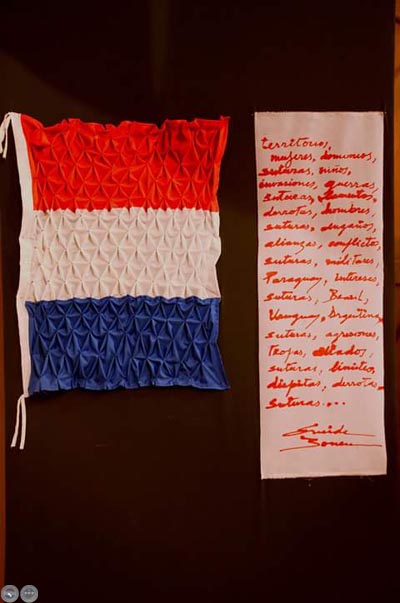 territorio,
mujeres, dominios,
suturas, niños,
invasiones, guerras,
suturas,
derrotas, hombres,
suturas, engaños,
alianzas, conflicto,
suturas, militares,
Paraguay, intereses,
suturas, Brasil,
Uruguay, Argentina,
suturas, agresiones,
tropas, aliados,
suturas, límites,
disputas, derrotas
suturas...